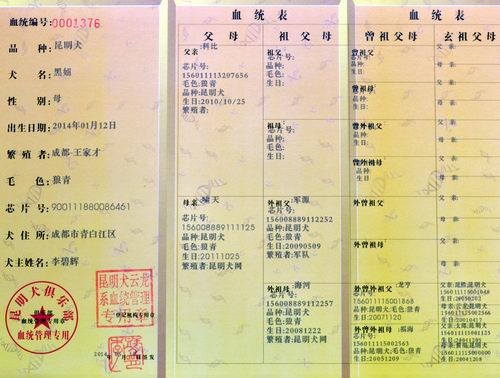 血统编号:0001376
品种: 昆明犬
犬名: 黑妞
性别: 母
出生日期: 2014年01月12日
繁殖者: 成都-王家才
毛色: 狼青
芯片号: 900111880086461
犬住所: 成都市青白江区
犬主姓名: 李碧辉
昆明犬俱乐部
血统管理专用
昆明犬云龙
系血统管理
专用章
登记机构专用章
血统表
父母
祖父母
父亲:科比
芯片号:
156011113207656
毛色:狼青
品种:昆明犬
生日:2010/10/25
繁殖者:
祖父:
芯片号:
毛色:
品种:
生日:
祖母:
芯片号:
毛色:
品种:
生日:
母亲:啸天
芯片号:
156008889111125
品种:昆明犬
毛色:狼青
生日:20111025
繁殖者:昆明犬网
外祖父:军源
芯片号:
156008889112252
品种:昆明犬
毛色:狼青
生日:20090509
繁殖者:军队
外祖母:海河
芯片号:
156008889112257
品种:昆明犬
毛色:狼青
生日:20081222
繁殖者:昆明犬网
血统表
曾祖父母
玄祖父母
曾祖父:
芯片号:
品种:
生日:
曾祖母:
品种:
生日:
曾外祖父:
芯片号:
品种:
生日:
曾外祖母:
芯片号:
品种:
生日:
外曾祖父:
外曾祖母:
外曾外祖父:龙亨
芯片号:
156011115001868
品种:昆明犬
毛色:狼青
生日:20071120
外曾外祖母:福海
芯片号:
156011115002563
品种:昆明犬
毛色:狼青
生日:20051209
父亲:
母亲:
父亲:
母亲:
父亲:
母亲:
父亲:
母亲: